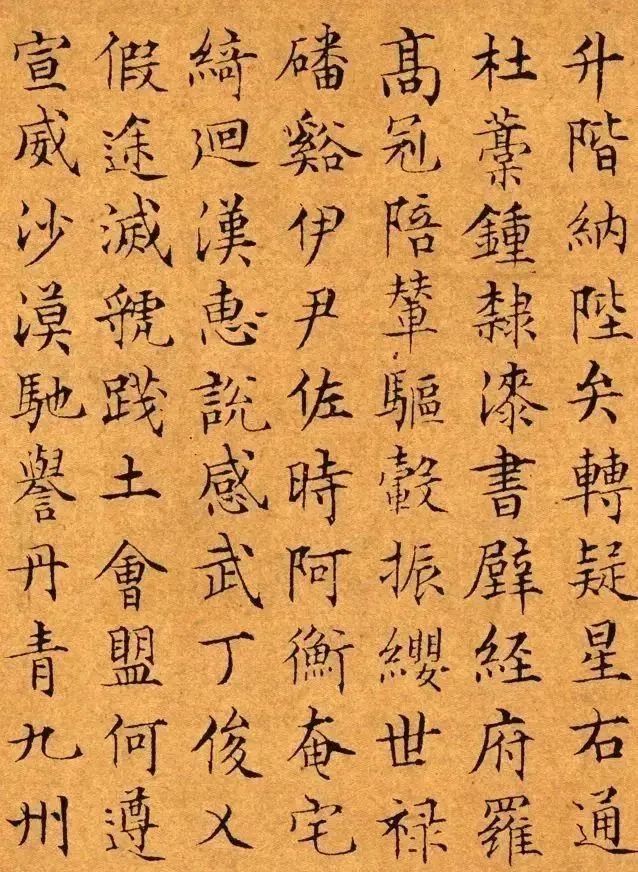 升階納陛矣轉疑星右通
杜藁鍾隸漆書壁経府羅
髙冠陪輦驅轂振纓世禄
磻谿伊尹佐時阿衡奄宅
綺迴漢惠說感武丁俊乂
假途滅虢踐土會盟何遵
宣威沙漠馳譽丹青九州